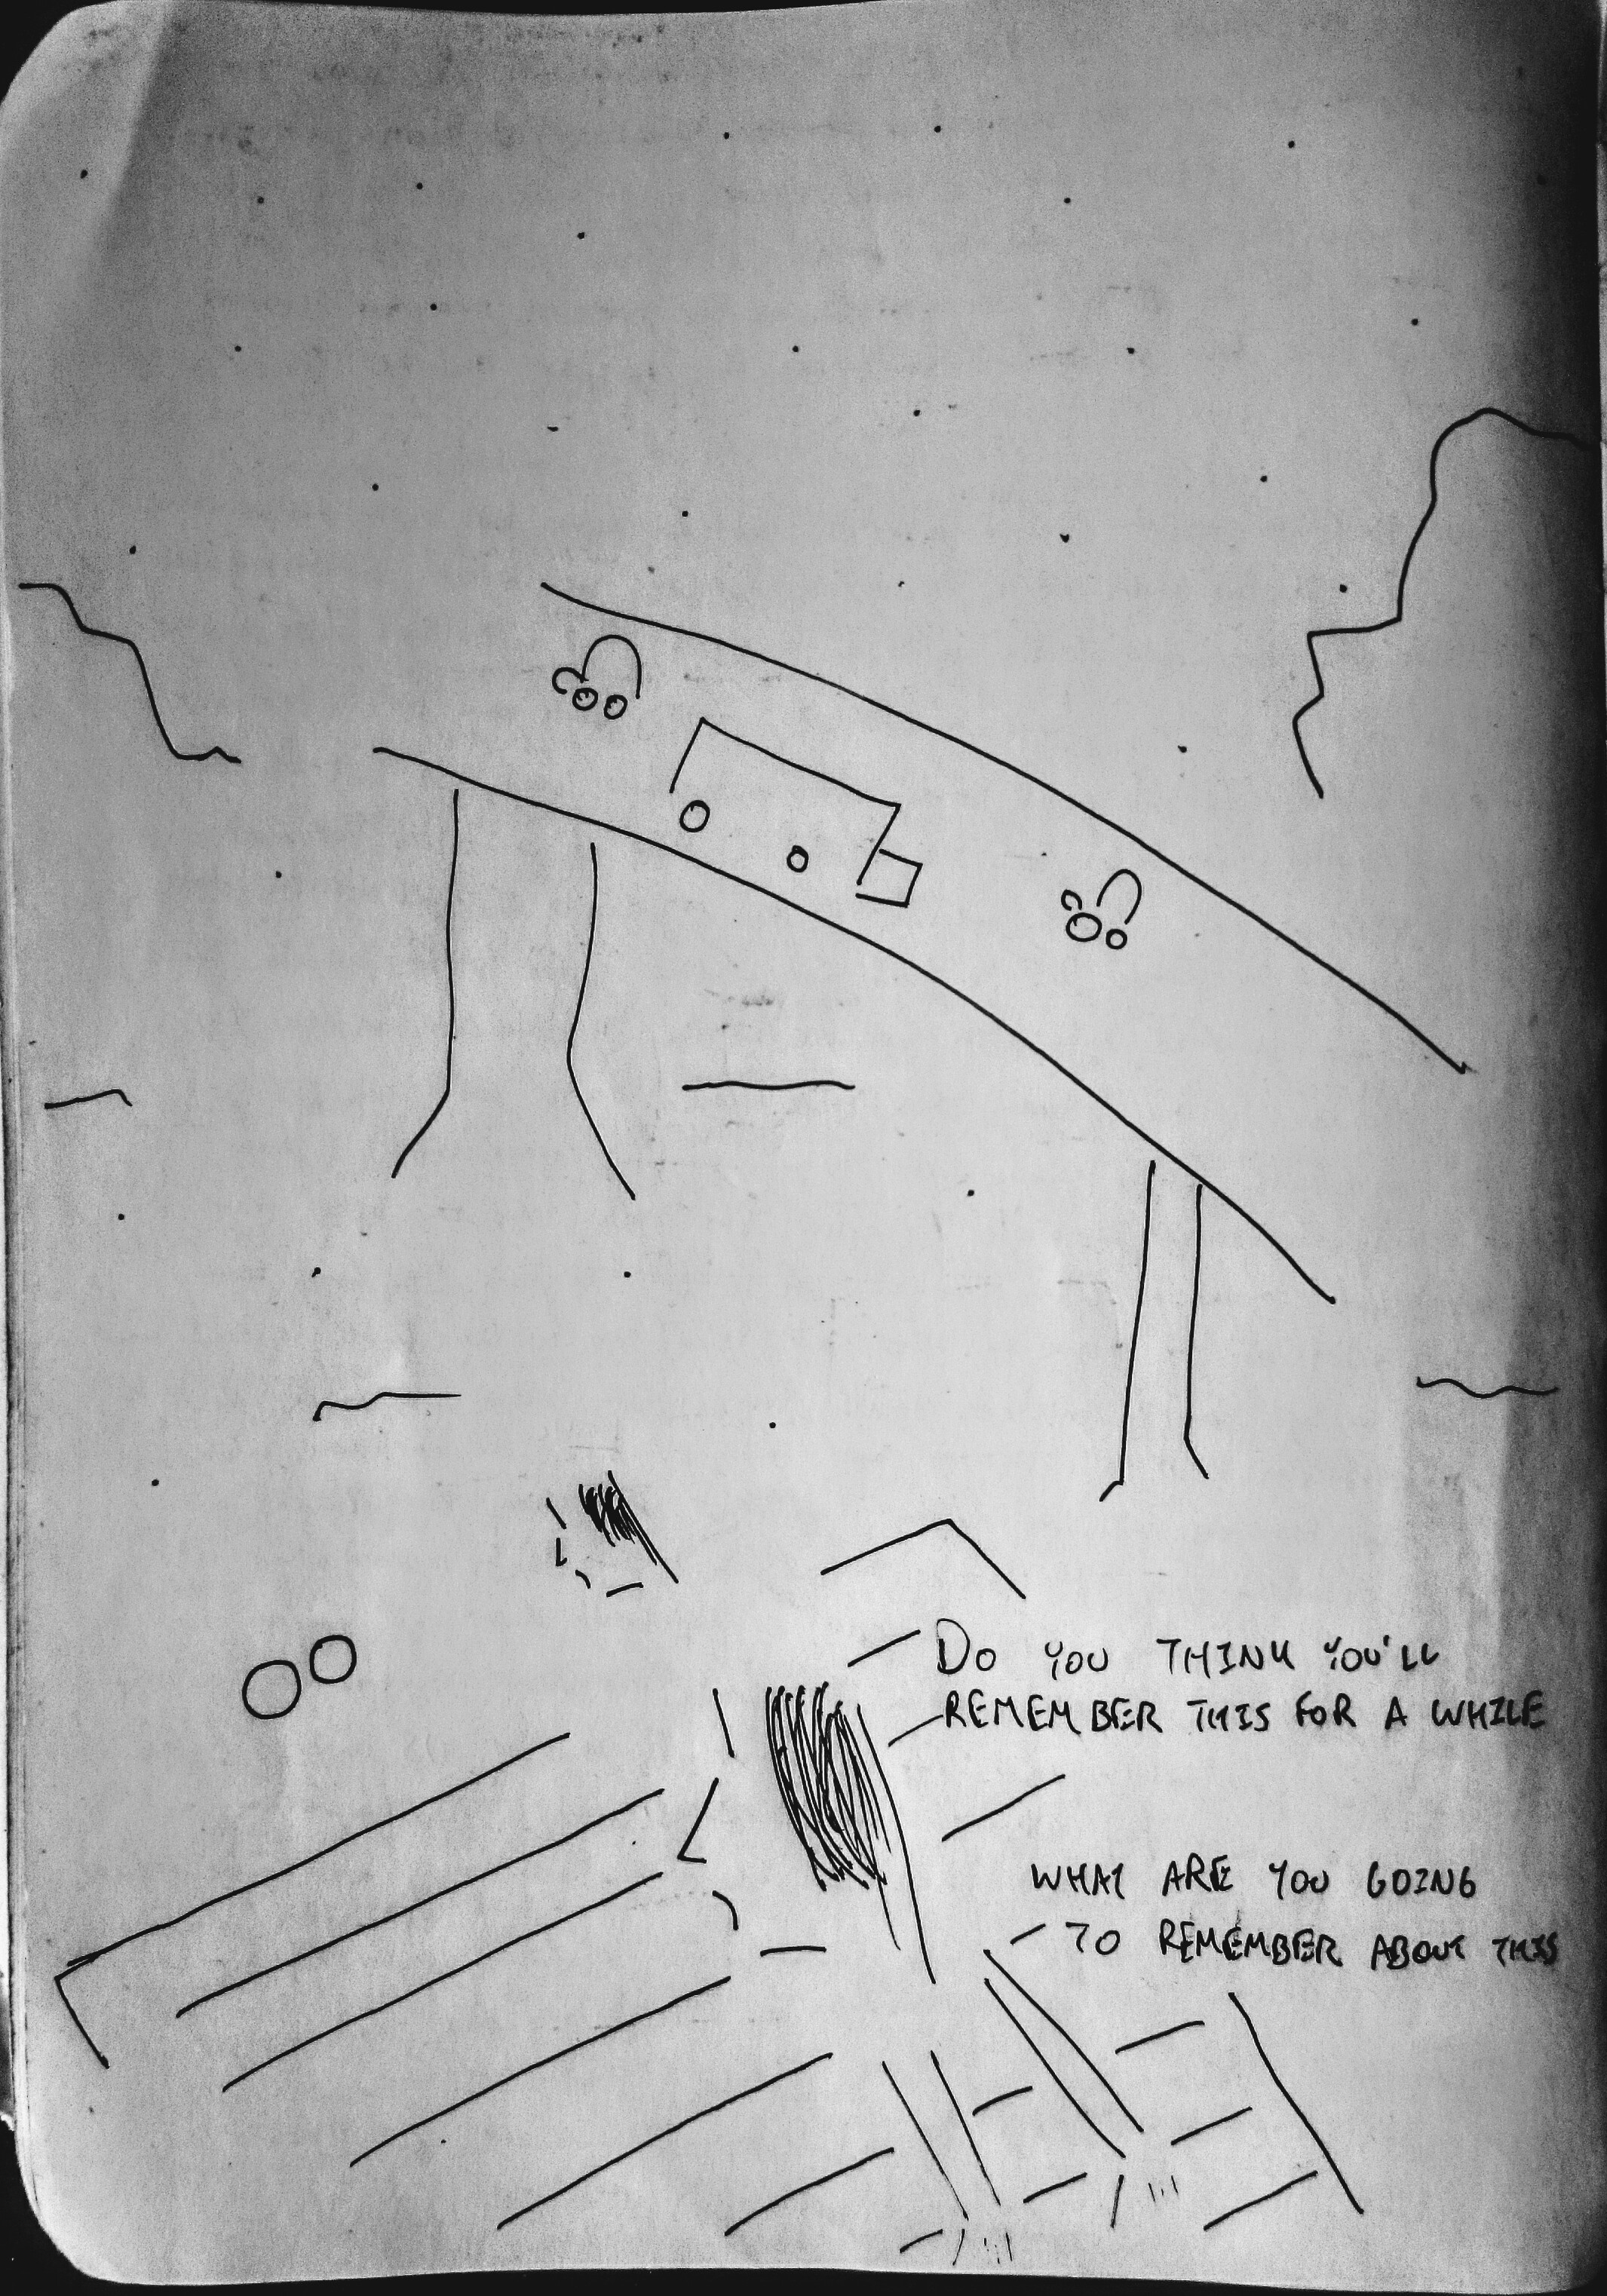 DO YOU THINK YOU'LL
REMEMBER THIS FOR A WHILE
WHAT ARE YOU GOING
TO REMEMBER ABOUT THIS